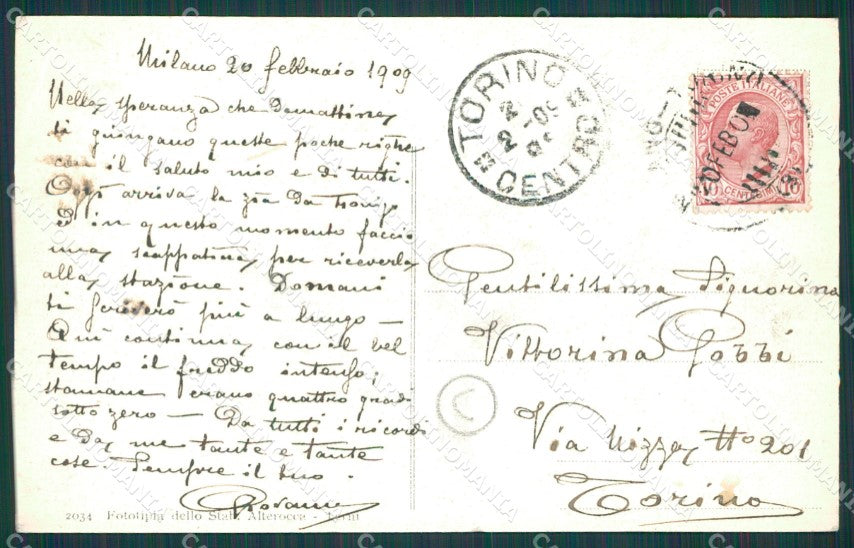 Milano 20 febbraio 1909
Nella speranza che domattina
ti giungano queste poche righe
con il saluto mio e di tutti.
Oggi arriva la zia da
ed in questo momento faccio
una scappatina per riceverla
alla stazione. Domani
ti scriverò più a lungo —
Qui continua con il bel
tempo il freddo intenso;
stamane erano quattro gradi
sotto zero — Da tutti i ricordi
e da me tante e tante
cose. Sempre il tuo.
2034 Fototipia dello Stab. Alterocca - Terni
TORINO
CENTRO
POSTE ITALIANE
20 FEB 09
Gentilissima Signorina
Vittorina Gobbi
Via Nizza No 201
Torino
CARTOLINOMANIA